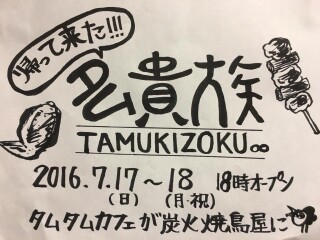 帰って来た!!!
タム貴族
TAMUKIZOKU∞
2016.7.17～18 18時オープン
(日) (月・祝)
タムタムカフェが炭火焼鳥屋に